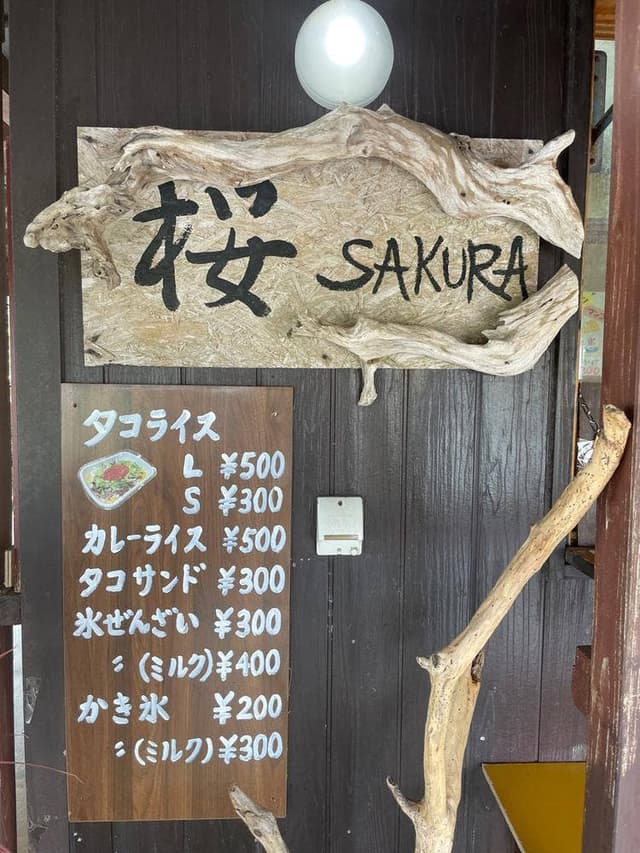 桜 SAKURA
タコライス
L ¥500
S ¥300
カレーライス ¥500
タコサンド ¥300
氷ぜんざい ¥300
〃 (ミルク) ¥400
かき氷 ¥200
〃 (ミルク) ¥300